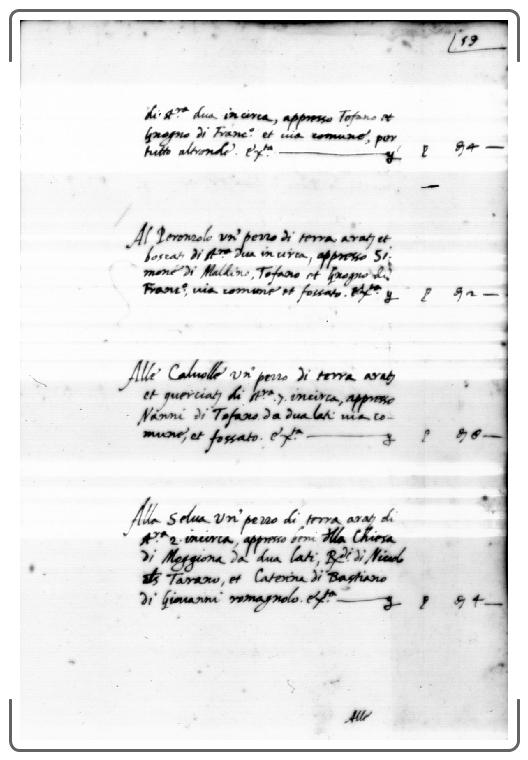 59
di st.ra dua incirca, appresso Tofano et
Gnogno di Franc.o et via comune, per
tutto altronde. et.ta — y p 4 —
Al Peronzolo un' pezzo di terra arat et
boscat di st.ra dua incirca, appresso Si-
mone di Maldino, Tofano et Gnogno di
Franc.o, via comune et fossato. y p 2 —
Alle Caluolle un' pezzo di terra arat
et querciat di st.ra 7. incirca, appresso
Nanni di Tofano da dua lati via co-
mune, et fossato. — y p 8 —
Alla Selva un' pezzo di terra arat di
st.ra 2. incirca, appresso beni della Chiesa
di Moggiona da dua lati, di Nicol
Tarano, et Caterina di Bastiano
di Giovanni romagnolo. — y p 4 —
Alle